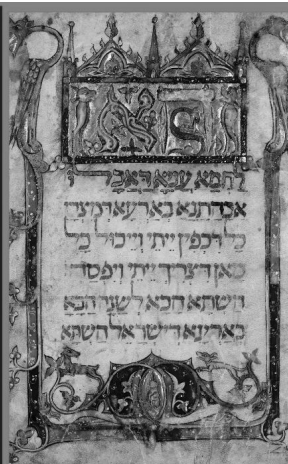 הא
לחמא עניא דאכלו
אבהתנא בארעא דמצרי
כל דכפין ייתי וייכול כל
מאן דצריך ייתי ויפסח
השתא הכא לשנה הבאה
בארעא דישראל השתא